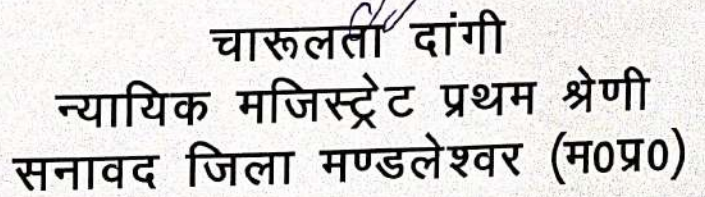 चारूलता दांगी
न्यायिक मजिस्ट्रेट प्रथम श्रेणी
सनावद जिला मण्डलेश्वर (म0प्र0)